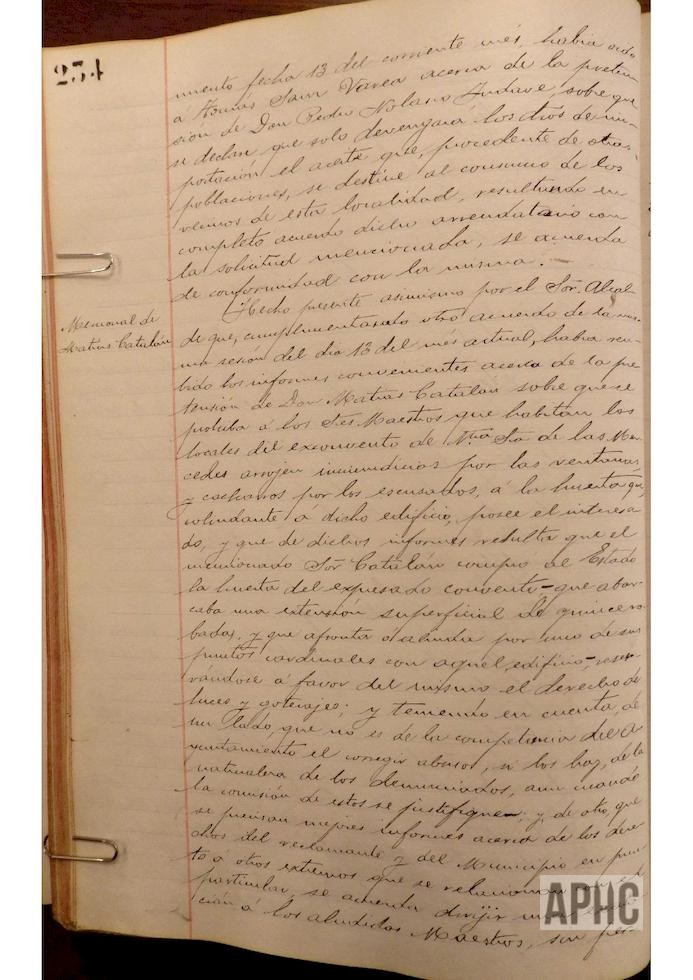 234
miento fecha 13 del corriente més, habia oido
á Tomás Sanz Varea acerca de la preten-
sión de Don Pedro Nolasco Andave, sobre que
se declare que solo devengará los dros de im-
portación el aceite que, procedente de otras
poblaciones, se destine al consumo de los
vecinos de esta localidad, resultando en
completo acuerdo dicho arrendatario con
la solicitud mencionada, se acuerda
de conformidad con la misma.
Memorial de
Matias Catalán
Hecho presente asimismo por el Sor. Alcal-
de que, cumplimentando otro acuerdo de la mis-
ma sesión del dia 13 del més actual, habia reci-
bido los informes convenientes acerca de la pre-
tensión de Don Matias Catalán sobre que se
prohiba á los Sres Maestros que habitan los
locales del exconvento de Ntra Sra de las Mer-
cedes arrojen inmundicias por las ventanas,
y cacharros por los escusados, á la huerta que,
colindante á dicho edificio, posee el interesa-
do, y que de dichos informes resulta que el
mencionado Sor Catalán compró al Estado
la huerta del expresado convento-que abar-
caba una extensión superficial de quince ro-
badas, y que afronta ó alinda por uno de sus
puntos cardinales con aquel edificio-reser-
vándose á favor del mismo el derecho de
luces y goterajes; y teniendo en cuenta, de
un lado, que no es de la competencia del A-
yuntamiento el corregir abusos, si los hay, de la
naturaleza de los denunciados, aun cuando
la comisión de estos se justifique; y, de otro, que
se precisan mejores informes acerca de los dere-
chos del reclamante y del Municipio en pun-
to á otros extremos que se relacionan con el
particular, se acuerda dirijir una
ción á los aludidos Maestros, sin per-
APHC